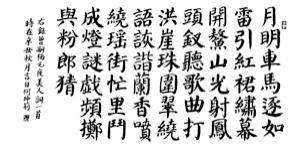 月明車馬逐如
雷引紅裙繡幕
開鰲山光射鳳
頭釵聽歌曲打
洪崖珠圍翠繞
語詼諧蘭香噴
繞瑶街忙里鬥
成燈謎戲頻擲
與粉郎猜
右錄曾嗣楊元夜美人詞一首
時在辛丑秋月吉日何